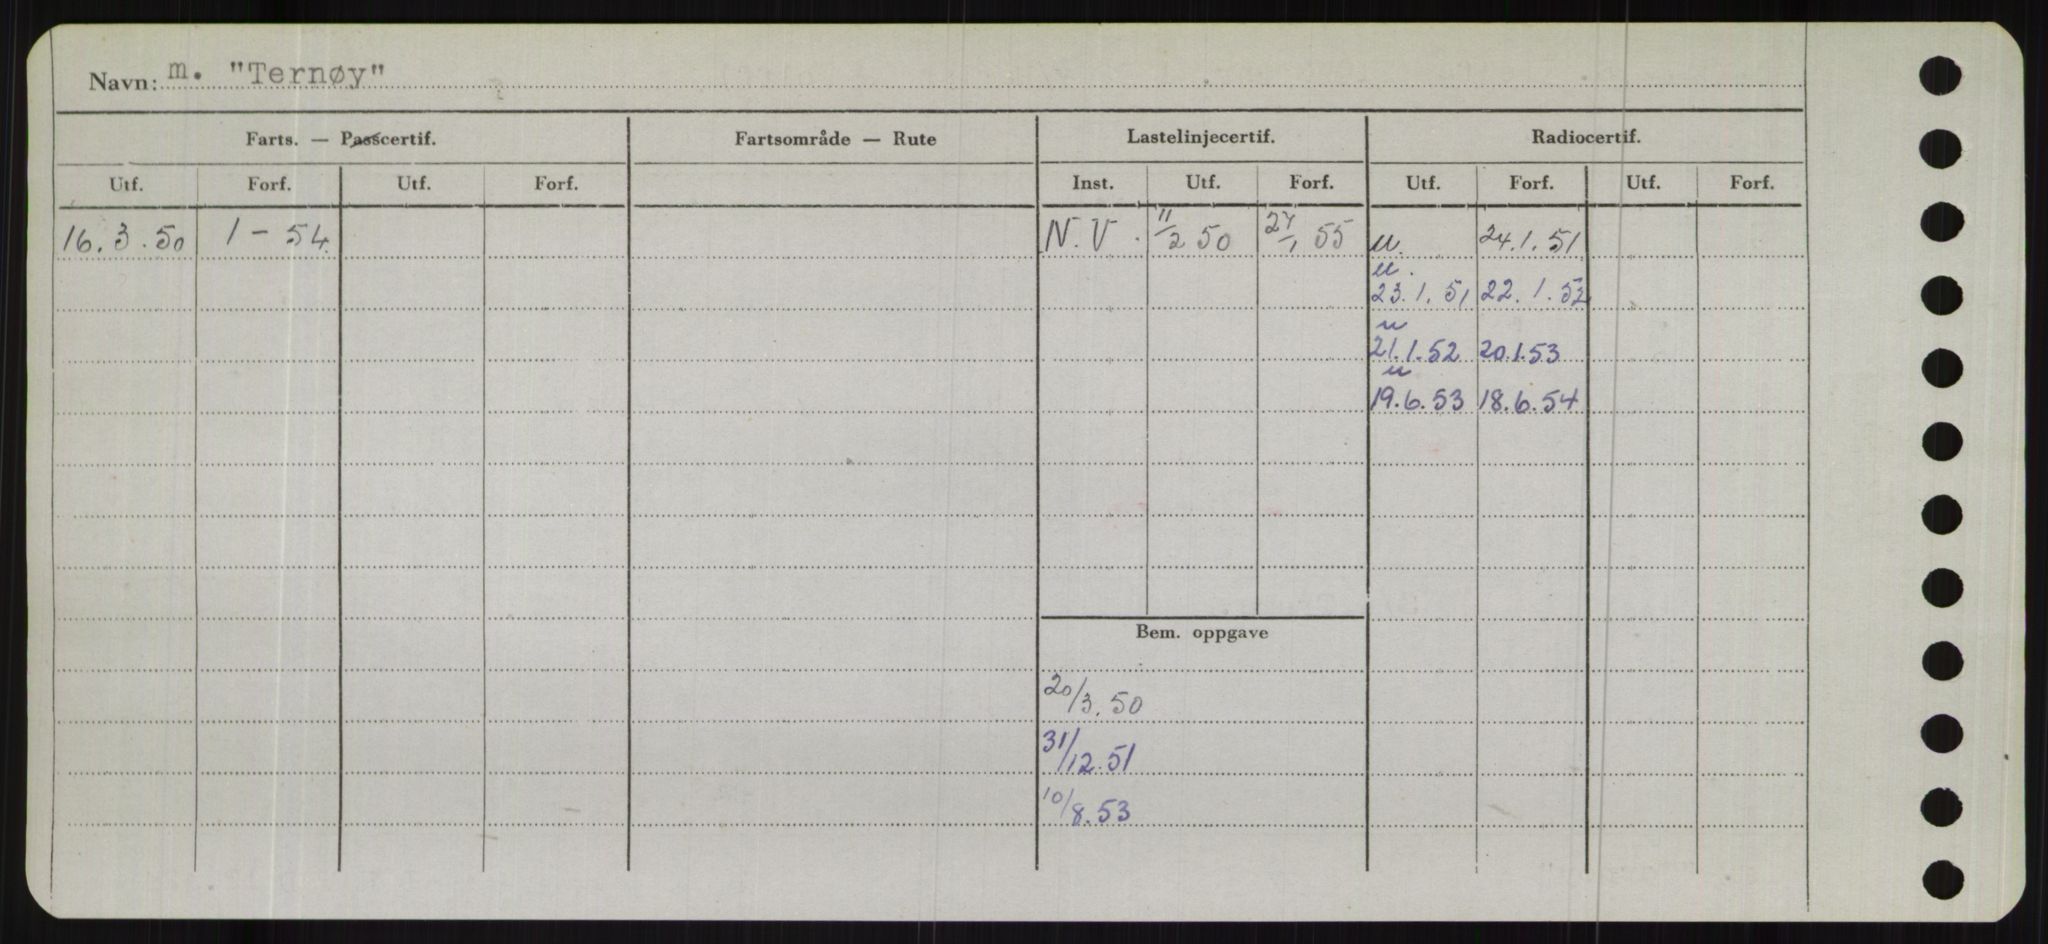 Navn: m. "Ternøy"
Farts. — Passcertif. Fartsområde — Rute Lastelinjecertif. Radiocertif.
Utf. Forf. Utf. Forf. Inst. Utf. Forf. Utf. Forf. Utf. Forf.
16.3.50 1 - 54 N.V. 11/2 50 27/1 55 u. 24.1.51
u.
23.1.51 22.1.52
u
21.1.52 20.1.53
u
19.6.53 18.6.54
Bem. oppgave
20/3.50
31/12.51
10/8.53